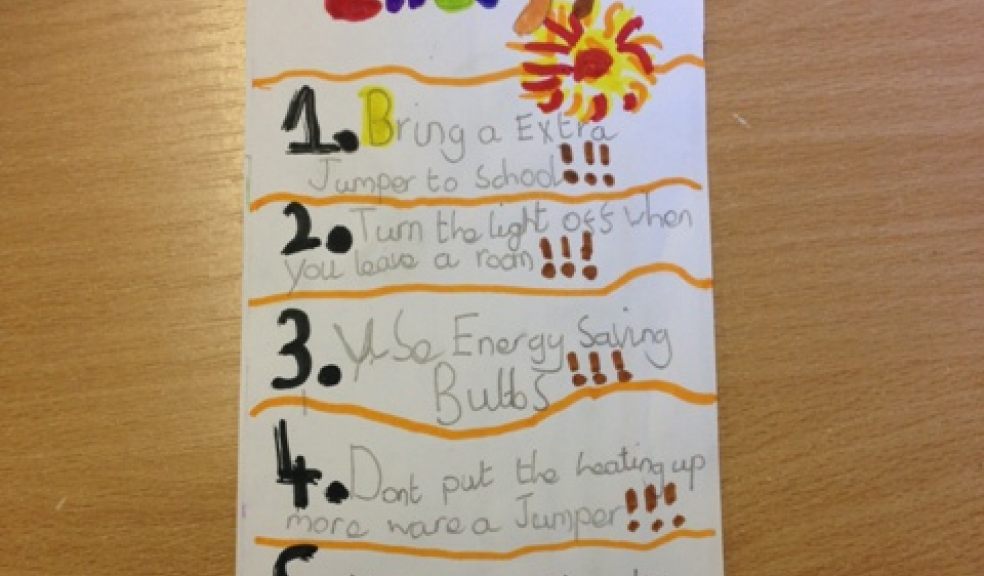 1. Bring a Extra
Jumper to School!!!
2. Turn the light off when
you leave a room!!!
3. Use Energy Saving
Bulbs!!!
4. Dont put the heating up
more ware a Jumper!!!
5.